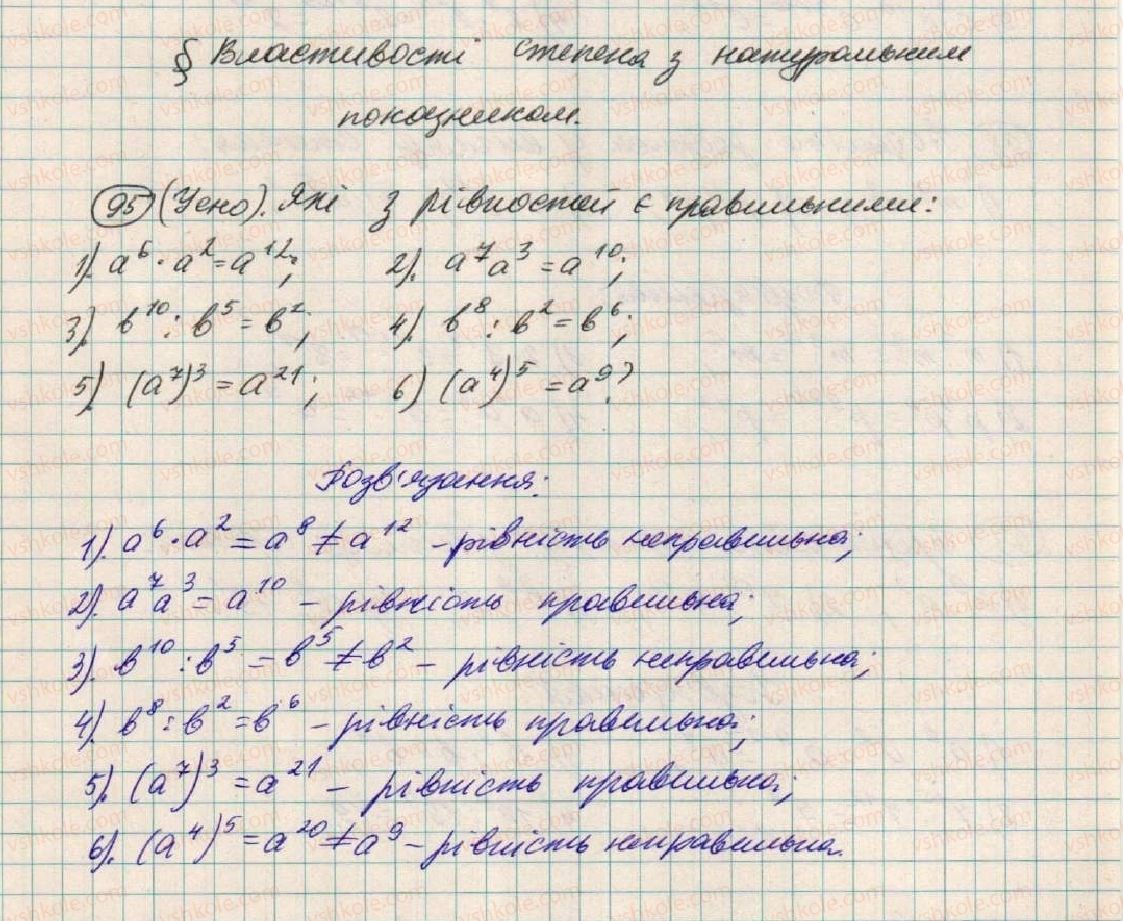 § Властивості степена з натуральним
показником.
95 (Усно). Які з рівностей є правильними:
1). a⁶ · a² = a¹²; 2). a⁷a³ = a¹⁰;
3). b¹⁰ : b⁵ = b²; 4). b⁸ : b² = b⁶;
5). (a⁷)³ = a²¹; 6) (a⁴)⁵ = a⁹?
Розв'язання:
1). a⁶ · a² = a⁸ ≠ a¹² – рівність неправильна;
2). a⁷a³ = a¹⁰ – рівність правильна;
3). b¹⁰ : b⁵ = b⁵ ≠ b² – рівність неправильна;
4). b⁸ : b² = b⁶ – рівність правильна;
5). (a⁷)³ = a²¹ – рівність правильна;
6). (a⁴)⁵ = a²⁰ ≠ a⁹ – рівність неправильна.